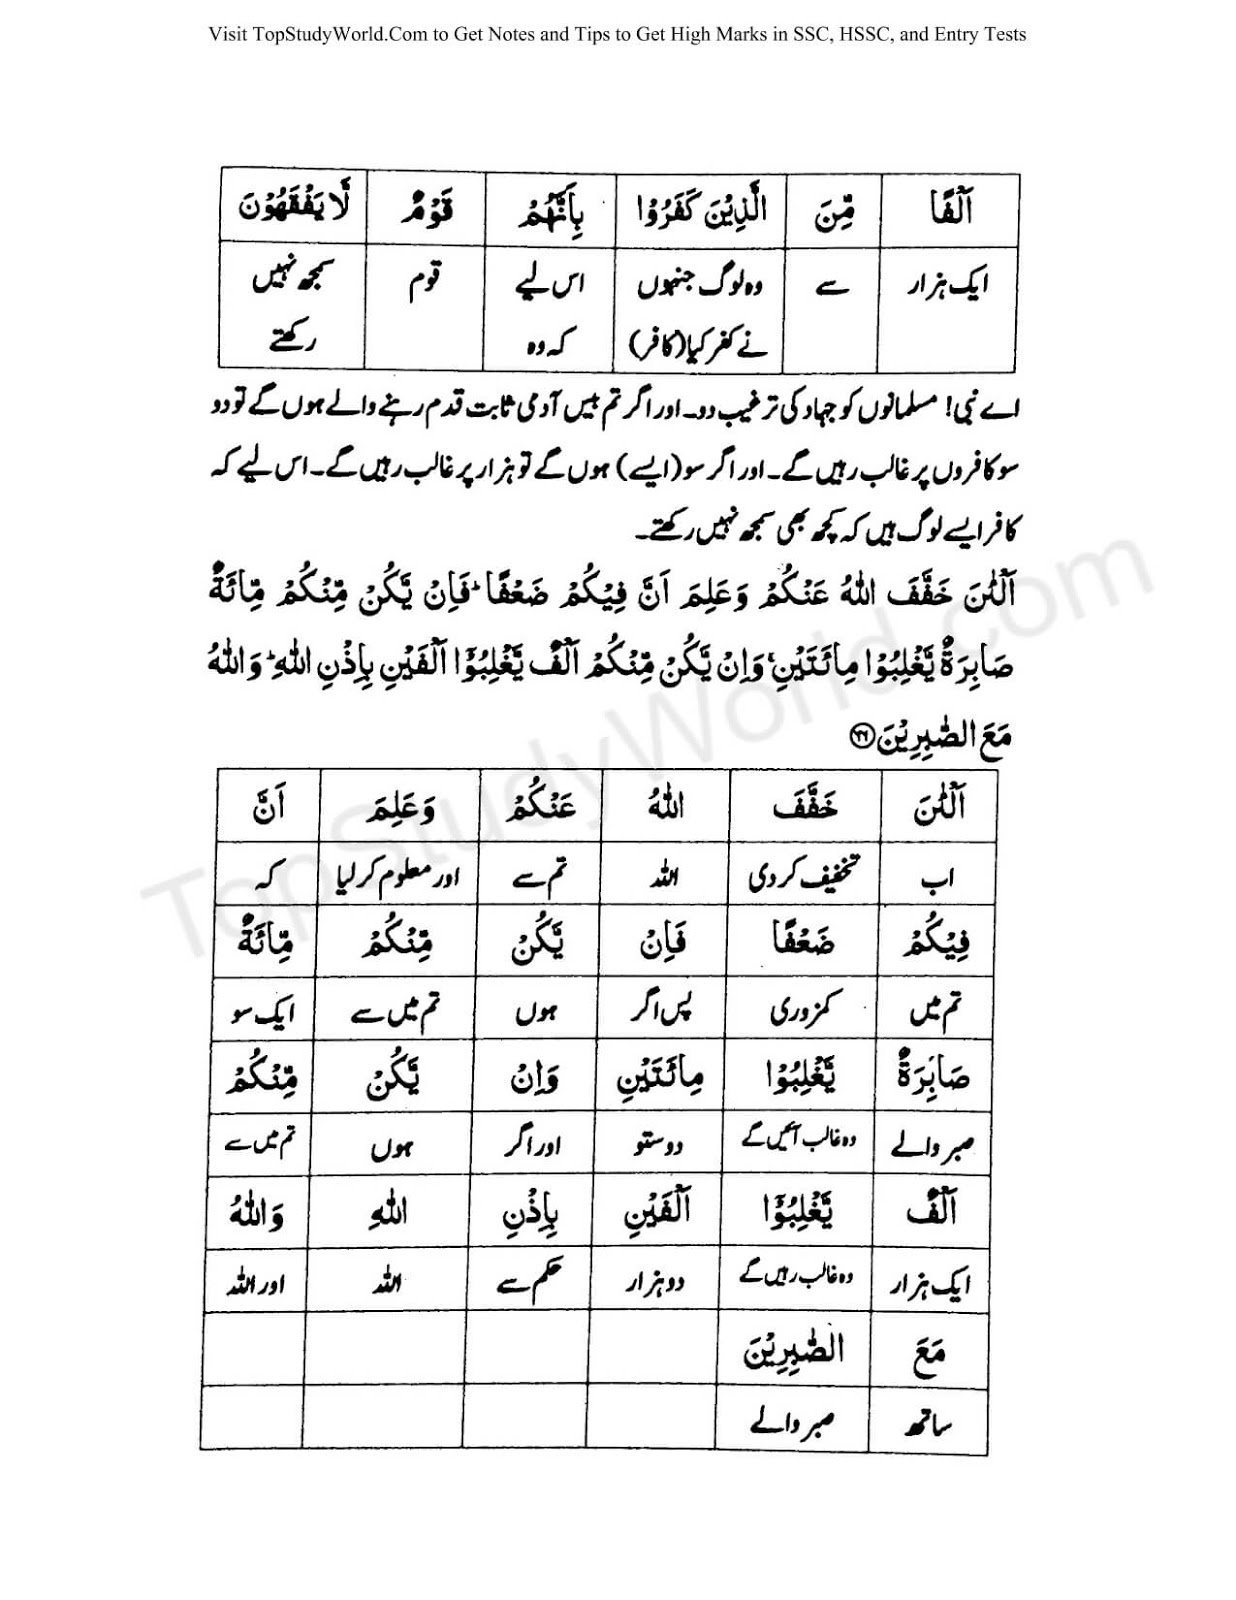 Visit TopStudyWorld.Com to Get Notes and Tips to Get High Marks in SSC, HSSC, and Entry Tests
اَلْفًا مِّنَ الَّذِيْنَ كَفَرُوْا بِاَنَّهُمْ قَوْمٌ لَّا يَفْقَهُوْنَ
ایک ہزار سے وہ لوگ جنہوں اس لیے قوم سمجھ نہیں
نے کفر کیا (کافر) کہ وہ رکھتے
اے نبی! مسلمانوں کو جہاد کی ترغیب دو۔ اور اگر تم بیس آدمی ثابت قدم رہنے والے ہوں گے تو دو
سو کافروں پر غالب رہیں گے۔ اور اگر سو (ایسے) ہوں گے تو ہزار پر غالب رہیں گے۔ اس لیے کہ
کافر ایسے لوگ ہیں کہ کچھ بھی سمجھ نہیں رکھتے۔
اَلْـٰٔنَ خَفَّفَ اللّٰهُ عَنْكُمْ وَعَلِمَ اَنَّ فِيْكُمْ ضَعْفًا ؕ فَاِنْ يَّكُنْ مِّنْكُمْ مِّائَةٌ
صَابِرَةٌ يَّغْلِبُوْا مِائَتَيْنِ ۚ وَاِنْ يَّكُنْ مِّنْكُمْ اَلْفٌ يَّغْلِبُوْٓا اَلْفَيْنِ بِاِذْنِ اللّٰهِ ؕ وَاللّٰهُ
مَعَ الصّٰبِرِيْنَ ۶۶
اَلْـٰٔنَ خَفَّفَ اللّٰهُ عَنْكُمْ وَعَلِمَ اَنَّ
اب تخفیف کر دی اللہ تم سے اور معلوم کر لیا کہ
فِيْكُمْ ضَعْفًا فَاِنْ يَّكُنْ مِّنْكُمْ مِّائَةٌ
تم میں کمزوری پس اگر ہوں تم میں سے ایک سو
صَابِرَةٌ يَّغْلِبُوْا مِائَتَيْنِ وَاِنْ يَّكُنْ مِّنْكُمْ
صبر والے وہ غالب آئیں گے دو ستو اور اگر ہوں تم میں سے
اَلْفٌ يَّغْلِبُوْٓا اَلْفَيْنِ بِاِذْنِ اللّٰهِ وَاللّٰهُ
ایک ہزار وہ غالب رہیں گے دو ہزار حکم سے اللہ اور اللہ
مَعَ الصّٰبِرِيْنَ
ساتھ صبر والے
TopStudyWorld.com